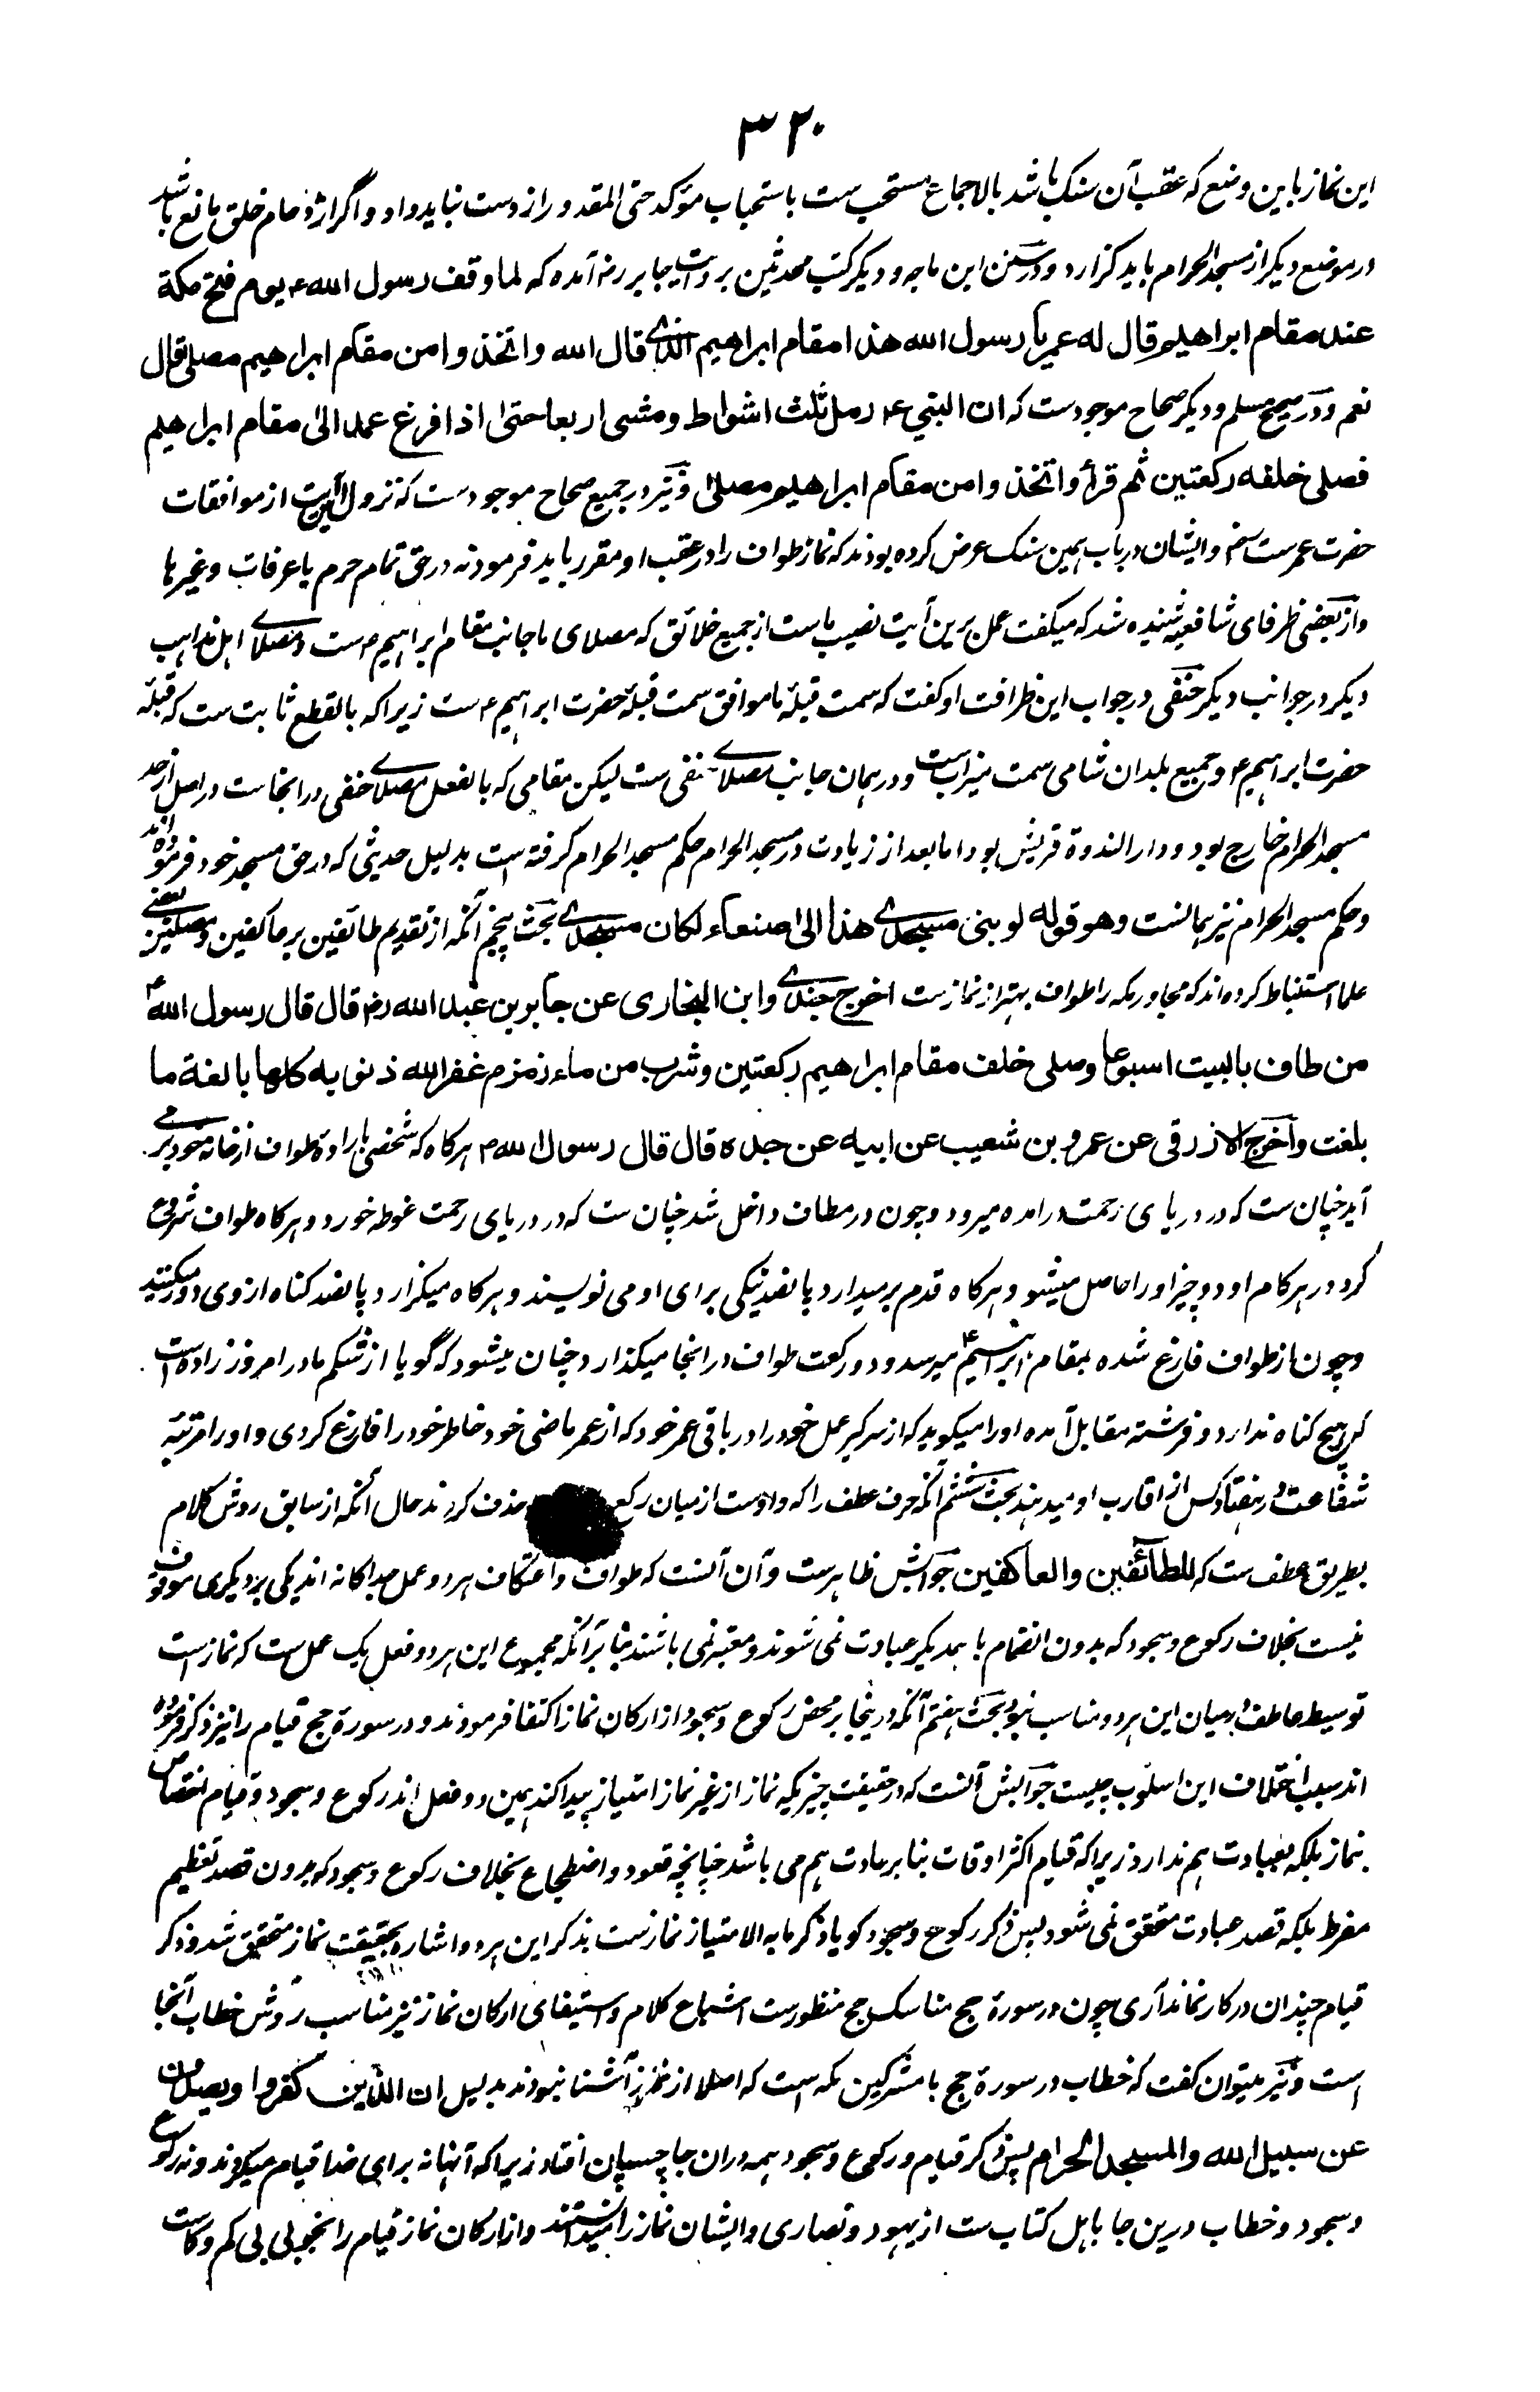 ۳۲۰
این نماز باین وضع که عقب آن سنک باشد بالاجماع مستحب ست باستحباب مؤکد حتی المقدور از دست نباید داد و اگر ازدحام خلق مانع باشد
در موضع دیکر از مسجد الحرام باید کزارد و در سنن ابن ماجه و دیکر کتب محدثین بروایت جابر رض آمده که لما وقف رسول الله ۴ یوم فتح مکة
عند مقام ابراهیم قال له عمر یا رسول الله هذا مقام ابراهیم الذی قال الله واتخذوا من مقام ابراهیم مصلی قال
نعم و در صحیح مسلم و دیکر صحاح موجودست که ان النبی ۴ رمل ثلث اشواط ومشی اربعا حتی اذا فرغ عمد الی مقام ابراهیم
فصلی خلفه رکعتین ثم قرأ واتخذوا من مقام ابراهیم مصلی و نیز در جمیع صحاح موجودست که نزول این آیت از موافقات
حضرت عمرست رض و ایشان در باب همین سنک عرض کرده بودند که نماز طواف را در عقب او مقرر باید فرمود نه در حق تمام حرم یا عرفات و غیرها
و از بعضی ظرفای شافعیه شنیده شد که میکفت عمل برین آیت نصیب ماست از جمیع خلائق که مصلای ما جانب مقام ابراهیم ۴ ست و مصلای اهل مذاهب
دیکر در جوانب دیکر حنفی در جواب این ظرافت او کفت که سمت قبلۀ ما موافق سمت قبلۀ حضرت ابراهیم ۴ ست زیرا که بالقطع ثابت ست که قبلۀ
حضرت ابراهیم ۴ و جمیع بلدان شامی سمت میزاب ست و در همان جانب مصلای حنفی ست لیکن مقامی که بالفعل مصلای حنفی در انجاست در اصل از حد
مسجد الحرام خارج بود و دار الندوة قریش بود اما بعد از زیادت در مسجد الحرام حکم مسجد الحرام کرفته است بدلیل حدیثی که در حق مسجد خود فرموده اند
و حکم مسجد الحرام نیز همانست وهو قوله لو بنی مسجدی هذا الی صنعاء لکان مسجدی بحث پنجم آنکه از تقدیم طائفین بر عاکفین و مصلین بعضی
علما استنباط کرده اند که مجاور مکه را طواف بهتر از نمازست اخرج جندی وابن النجاری عن جابر بن عبد الله رض قال قال رسول الله ۴
من طاف بالبیت اسبوعا وصلی خلف مقام ابراهیم رکعتین وشرب من ماء زمزم غفر الله ذنوبه کلها بالغة ما
بلغت واخرج الازرقی عن عمرو بن شعیب عن ابیه عن جده قال قال رسول الله ۴ هر کاه که شخصی بارادۀ طواف از خانه خود بر می
آید چنان ست که در دریای رحمت در امده میرود و چون در مطاف داخل شد چنان ست که در دریای رحمت غوطه خورد و هر کاه طواف شروع
کرد در هر کام او دو چیز او را حاصل میشود هر کاه قدم بر میدارد پانصد نیکی برای او می نویسند و هر کاه میکزارد پانصد کناه از وی دور میکنند
و چون از طواف فارغ شده بمقام ابراهیم ۴ میرسد و دو رکعت طواف در انجا میکذارد چنان میشود که گویا از شکم مادر امروز زاده است
که هیچ کناه ندارد و فرشته مقابل آمده او را میکوید که از سر کیر عمل خود را در باقی عمر خود که از عمر ماضی خود خاطر خود را فارغ کردی و او را مرتبۀ
شفاعت در هفتاد کس از اقارب او میدهند بحث ششم آنکه حرف عطف را که واوست از میان رکع حذف کردند حال آنکه از سابق روش کلام
بطریق عطف ست که للطائفین والعاکفین جوابش ظاهرست و آن آنست که طواف و اعتکاف هر دو عمل جداکانه اند یکی بر دیکری موقوف
نیست بخلاف رکوع و سجود که بدون انضمام با همدیکر عبادت نمی شوند و معتبر نمی باشند بنا بر آنکه مجموع این هر دو فعل یک عمل ست که نمازست
توسیط عاطف در میان این هر دو مناسب نبود بحث هفتم آنکه درینجا بر محض رکوع و سجود از ارکان نماز اکتفا فرمودند و در سورۀ حج قیام را نیز ذکر فرموده
اند سبب اختلاف این اسلوب چیست جوابش آنست که در حقیقت چیزیکه نماز از غیر نماز امتیاز پیدا کند همین دو فعل اند رکوع و سجود و قیام اختصاص
بنماز بلکه بعبادت هم ندارد زیرا که قیام اکثر اوقات بنا بر عادت هم می باشد چنانچه قعود و اضطجاع بخلاف رکوع و سجود که بدون قصد تعظیم
مفرط بلکه قصد عبادت متحقق نمی شود پس ذکر رکوع و سجود کویا ذکر ما به الامتیاز نمازست بذکر این هر دو اشاره بحقیقت نماز متحقق شد و ذکر
قیام چندان در کار نماند آری چون در سورۀ حج مناسک حج منظورست اشباع کلام و استیفای ارکان نماز نیز مناسب روش خطاب آنجا
است و نیز میتوان کفت که خطاب در سورۀ حج با مشرکین مکه است که اصلا از نماز آشنا نبودند بدلیل ان الذین کفروا ویصدون
عن سبیل الله والمسجد الحرام پس ذکر قیام و رکوع و سجود همه دران جا چسپان افتاد زیرا که آنها نه برای خدا قیام میکردند و نه رکوع
و سجود و خطاب درین جا باهل کتاب ست از یهود و نصاری و ایشان نماز را میدانستند و از ارکان نماز قیام را بخوبی بی کم و کاست